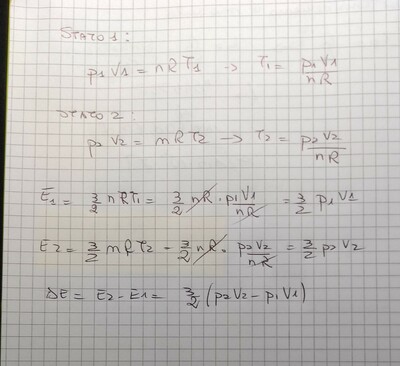 STATO 1:
p1 V1 = nRT1 → T1 = p1V1/nR
STATO 2:
p2 V2 = nRT2 → T2 = p2V2/nR
E1 = 3/2 nRT1 = 3/2 nR · p1V1/nR = 3/2 p1V1
E2 = 3/2 nRT2 = 3/2 nR · p2V2/nR = 3/2 p2V2
ΔE = E2 - E1 = 3/2 (p2V2 - p1V1)